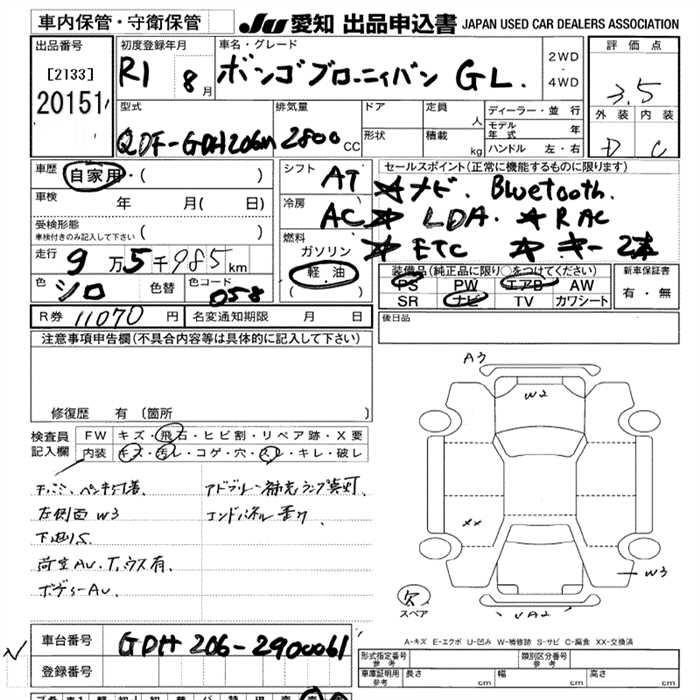 車内保管・守衛保管
JU 愛知 出品申込書 JAPAN USED CAR DEALERS ASSOCIATION
出品番号
[2133]
20151
初度登録年月
R1 8月
車名・グレード
ボンゴブローニィバン GL.
2WD
・
4WD
評価点
3.5
外装 内装
D C
型式
QDF-GDH206M
排気量
2800cc
ドア
形状
定員 人
積載 kg
ディーラー・並行
モデル年式 年
ハンドル 左・右
車歴 自家用・( )
車検 年 月( 日)
受検形態
車検付きのみ記入して下さい ( )
走行 9万5千985km
色 シロ 色替 色コード 058
シフト AT
冷房 AC
燃料
ガソリン
軽油
( )
セールスポイント(正常に機能するものに限ります)
☆ナビ. Bluetooth.
☆LDA. ☆RAC
☆ETC ☆キー2本
装備品(純正品に限り○をつけてください)
PS PW エアB AW
SR ナビ TV カワシート
新車保証書
有・無
R券 11070円 名変通知期限 月 日
後日品
注意事項申告欄(不具合内容等は具体的に記入して下さい)
修復歴 有 (箇所
検査員
記入欄
FW キズ・飛石・ヒビ割・リペア跡・X要
内装 キズ・汚レ・コゲ・穴・スレ・キレ・破レ
左側面W3
下廻りS
荷室AU、T、ウス有
ボディーAU.
アドブルー補充ランプ点灯
エンドパネル歪み
A3
W2
XX
W3
VA2
欠
スペア
A-キズ E-エクボ U-凹み W-補修跡 S-サビ C-腐食 XX-交換済
車台番号 GDH206-2900061
登録番号
形式指定番号
参考
類別区分番号
参考
車庫証明用
参考
長さ cm 幅 cm 高さ cm